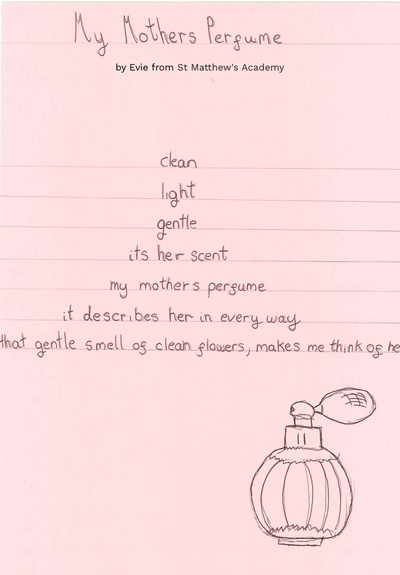 My Mothers Perfume
by Evie from St Matthew's Academy
clean
light
gentle
its her scent
my mothers perfume
it describes her in every way
that gentle smell of clean flowers, makes me think of he